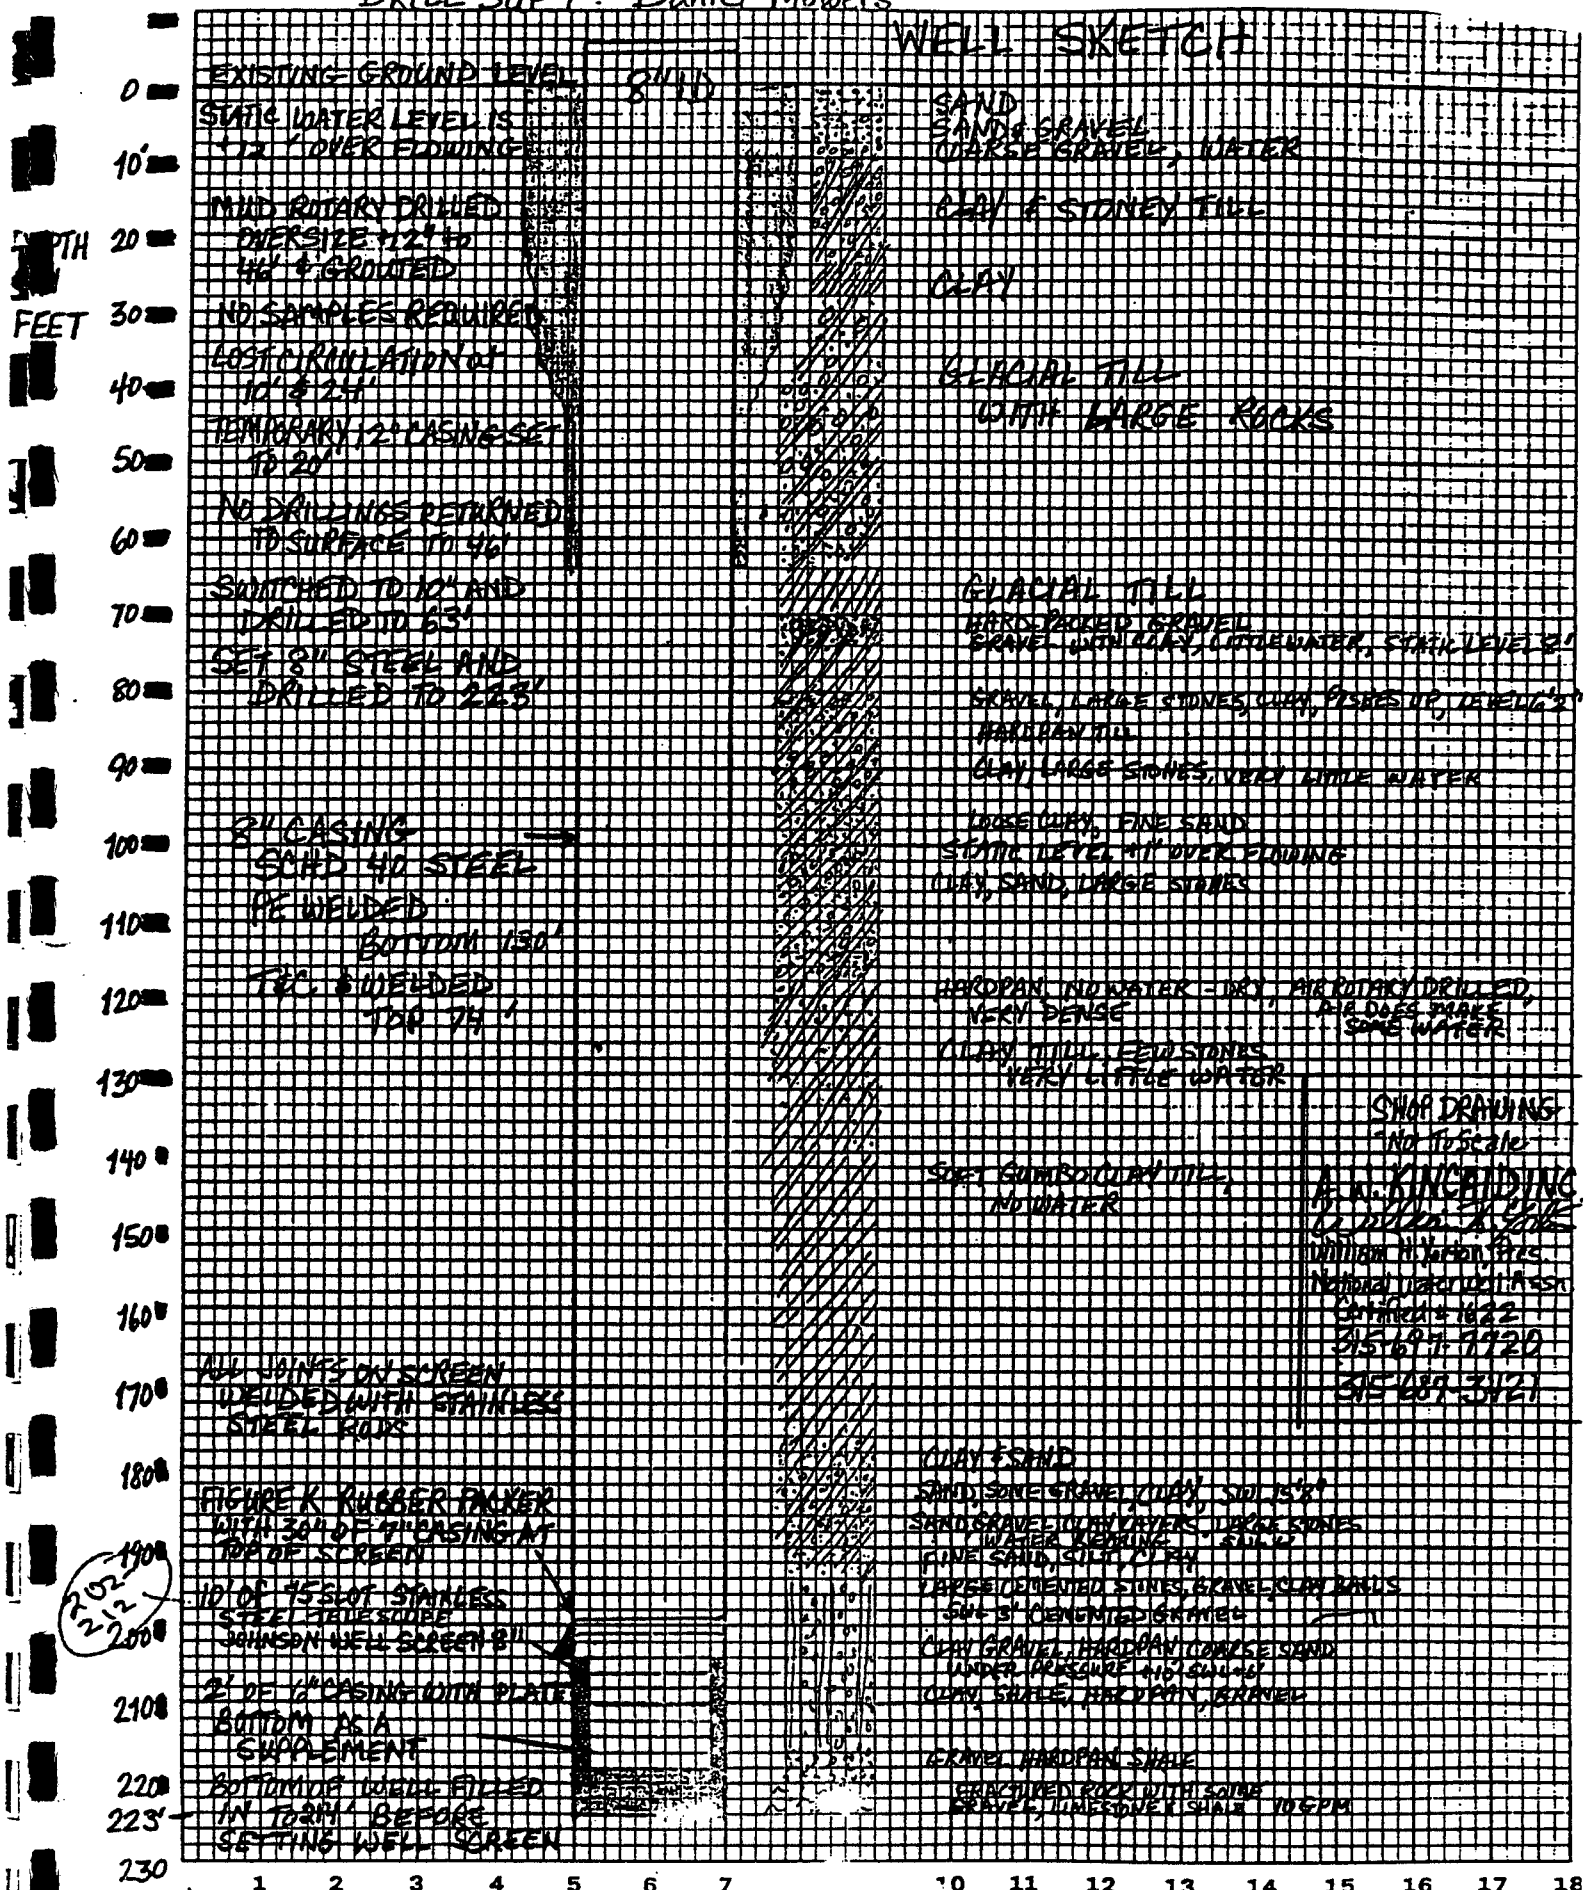 DRILL SUP'T: Daniel Mowers
WELL SKETCH
EXISTING GROUND LEVEL
8" ID
STATIC WATER LEVEL IS
+12' OVER FLOWING
MUD ROTARY DRILLED
OVERSIZE +12" to
46' & GROUTED
NO SAMPLES REQUIRED
LOST CIRCULATION at
10' & 24'
TEMPORARY 12" CASING SET
TO 20'
NO DRILLINGS RETURNED
TO SURFACE TO 46'
SWITCHED TO 10" AND
DRILLED TO 63'
SET 8" STEEL AND
DRILLED TO 223'
8" CASING
SCHD 40 STEEL
PE WELDED
BOTTOM 130'
T&C & WELDED
TOP 74'
ALL JOINTS ON SCREEN
WELDED WITH STAINLESS
STEEL RODS
FIGURE K RUBBER PACKER
WITH 30" OF 7" CASING AT
TOP OF SCREEN
10' OF 45 SLOT STAINLESS
STEEL TELESCOPE
JOHNSON WELL SCREEN 8"
2' OF 6" CASING WITH PLATE
BOTTOM AS A
SUPPLEMENT
BOTTOM OF WELL FILLED
IN TO 214' BEFORE
SETTING WELL SCREEN
202
212
DEPTH
FEET
0
10'
20
30
40
50
60
70
80
90
100
110
120
130
140
150
160
170
180
190
200
210
220
223'
230
SAND
SAND & GRAVEL
COARSE GRAVEL, WATER
CLAY & STONEY TILL
CLAY
GLACIAL TILL
WITH LARGE ROCKS
GLACIAL TILL
HARD PACKED GRAVEL
GRAVEL WITH CLAY, LITTLE WATER, STATIC LEVEL 8'
GRAVEL, LARGE STONES, CLAY, PUSHES UP, LEVEL 6'2"
HARDPAN TILL
CLAY, LARGE STONES, VERY LITTLE WATER
LOOSE CLAY, FINE SAND
STATIC LEVEL +1' OVER FLOWING
CLAY, SAND, LARGE STONES
HARDPAN, NO WATER - DRY, AIR ROTARY DRILLED,
VERY DENSE
AIR DOES MAKE
SOME WATER
CLAY TILL, FEW STONES
VERY LITTLE WATER
SOFT GUMBO CLAY TILL,
NO WATER
SHOP DRAWING
Not To Scale
A.W. KINCAID INC.
William H. Pres.
National Water Well Assn
Certified # 1622
315-697-7720
315-687-3421
CLAY & SAND
SAND, SOME GRAVEL, CLAY, SWL 15'8"
SAND, GRAVEL, CLAY LAYERS, LARGE STONES
WATER BEARING SWL
FINE SAND, SILT, CLAY
LARGE CEMENTED STONES, GRAVEL, CLAY BALLS
SWL 3' CEMENTED GRAVEL
CLAY GRAVEL, HARDPAN, COARSE SAND
UNDER PRESSURE +10' SWL +6'
CLAY, SHALE, HARDPAN, GRAVEL
GRAVEL HARDPAN SHALE
FRACTURED ROCK WITH SOME
GRAVEL, LIMESTONE & SHALE 40 GPM
1 2 3 4 5 6 7 10 11 12 13 14 15 16 17 18